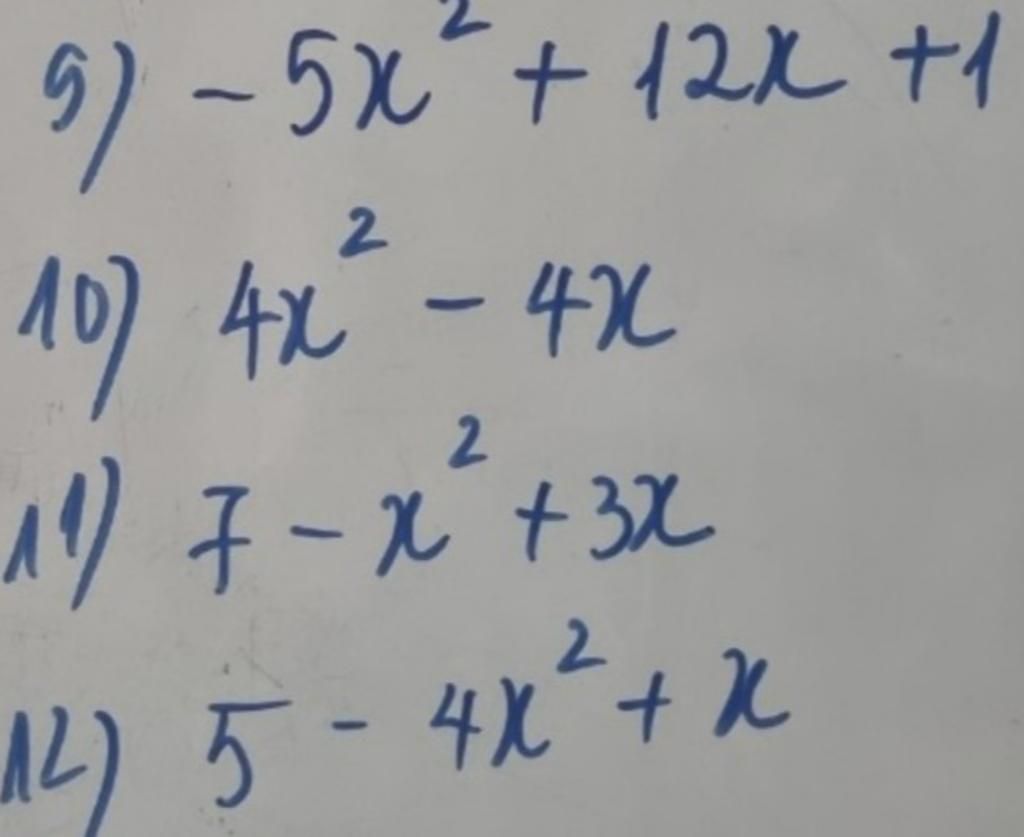 9) - 5x² + 12x + 1
10) 4x² - 4x
11) 7 - x² + 3x
12) 5 - 4x² + x